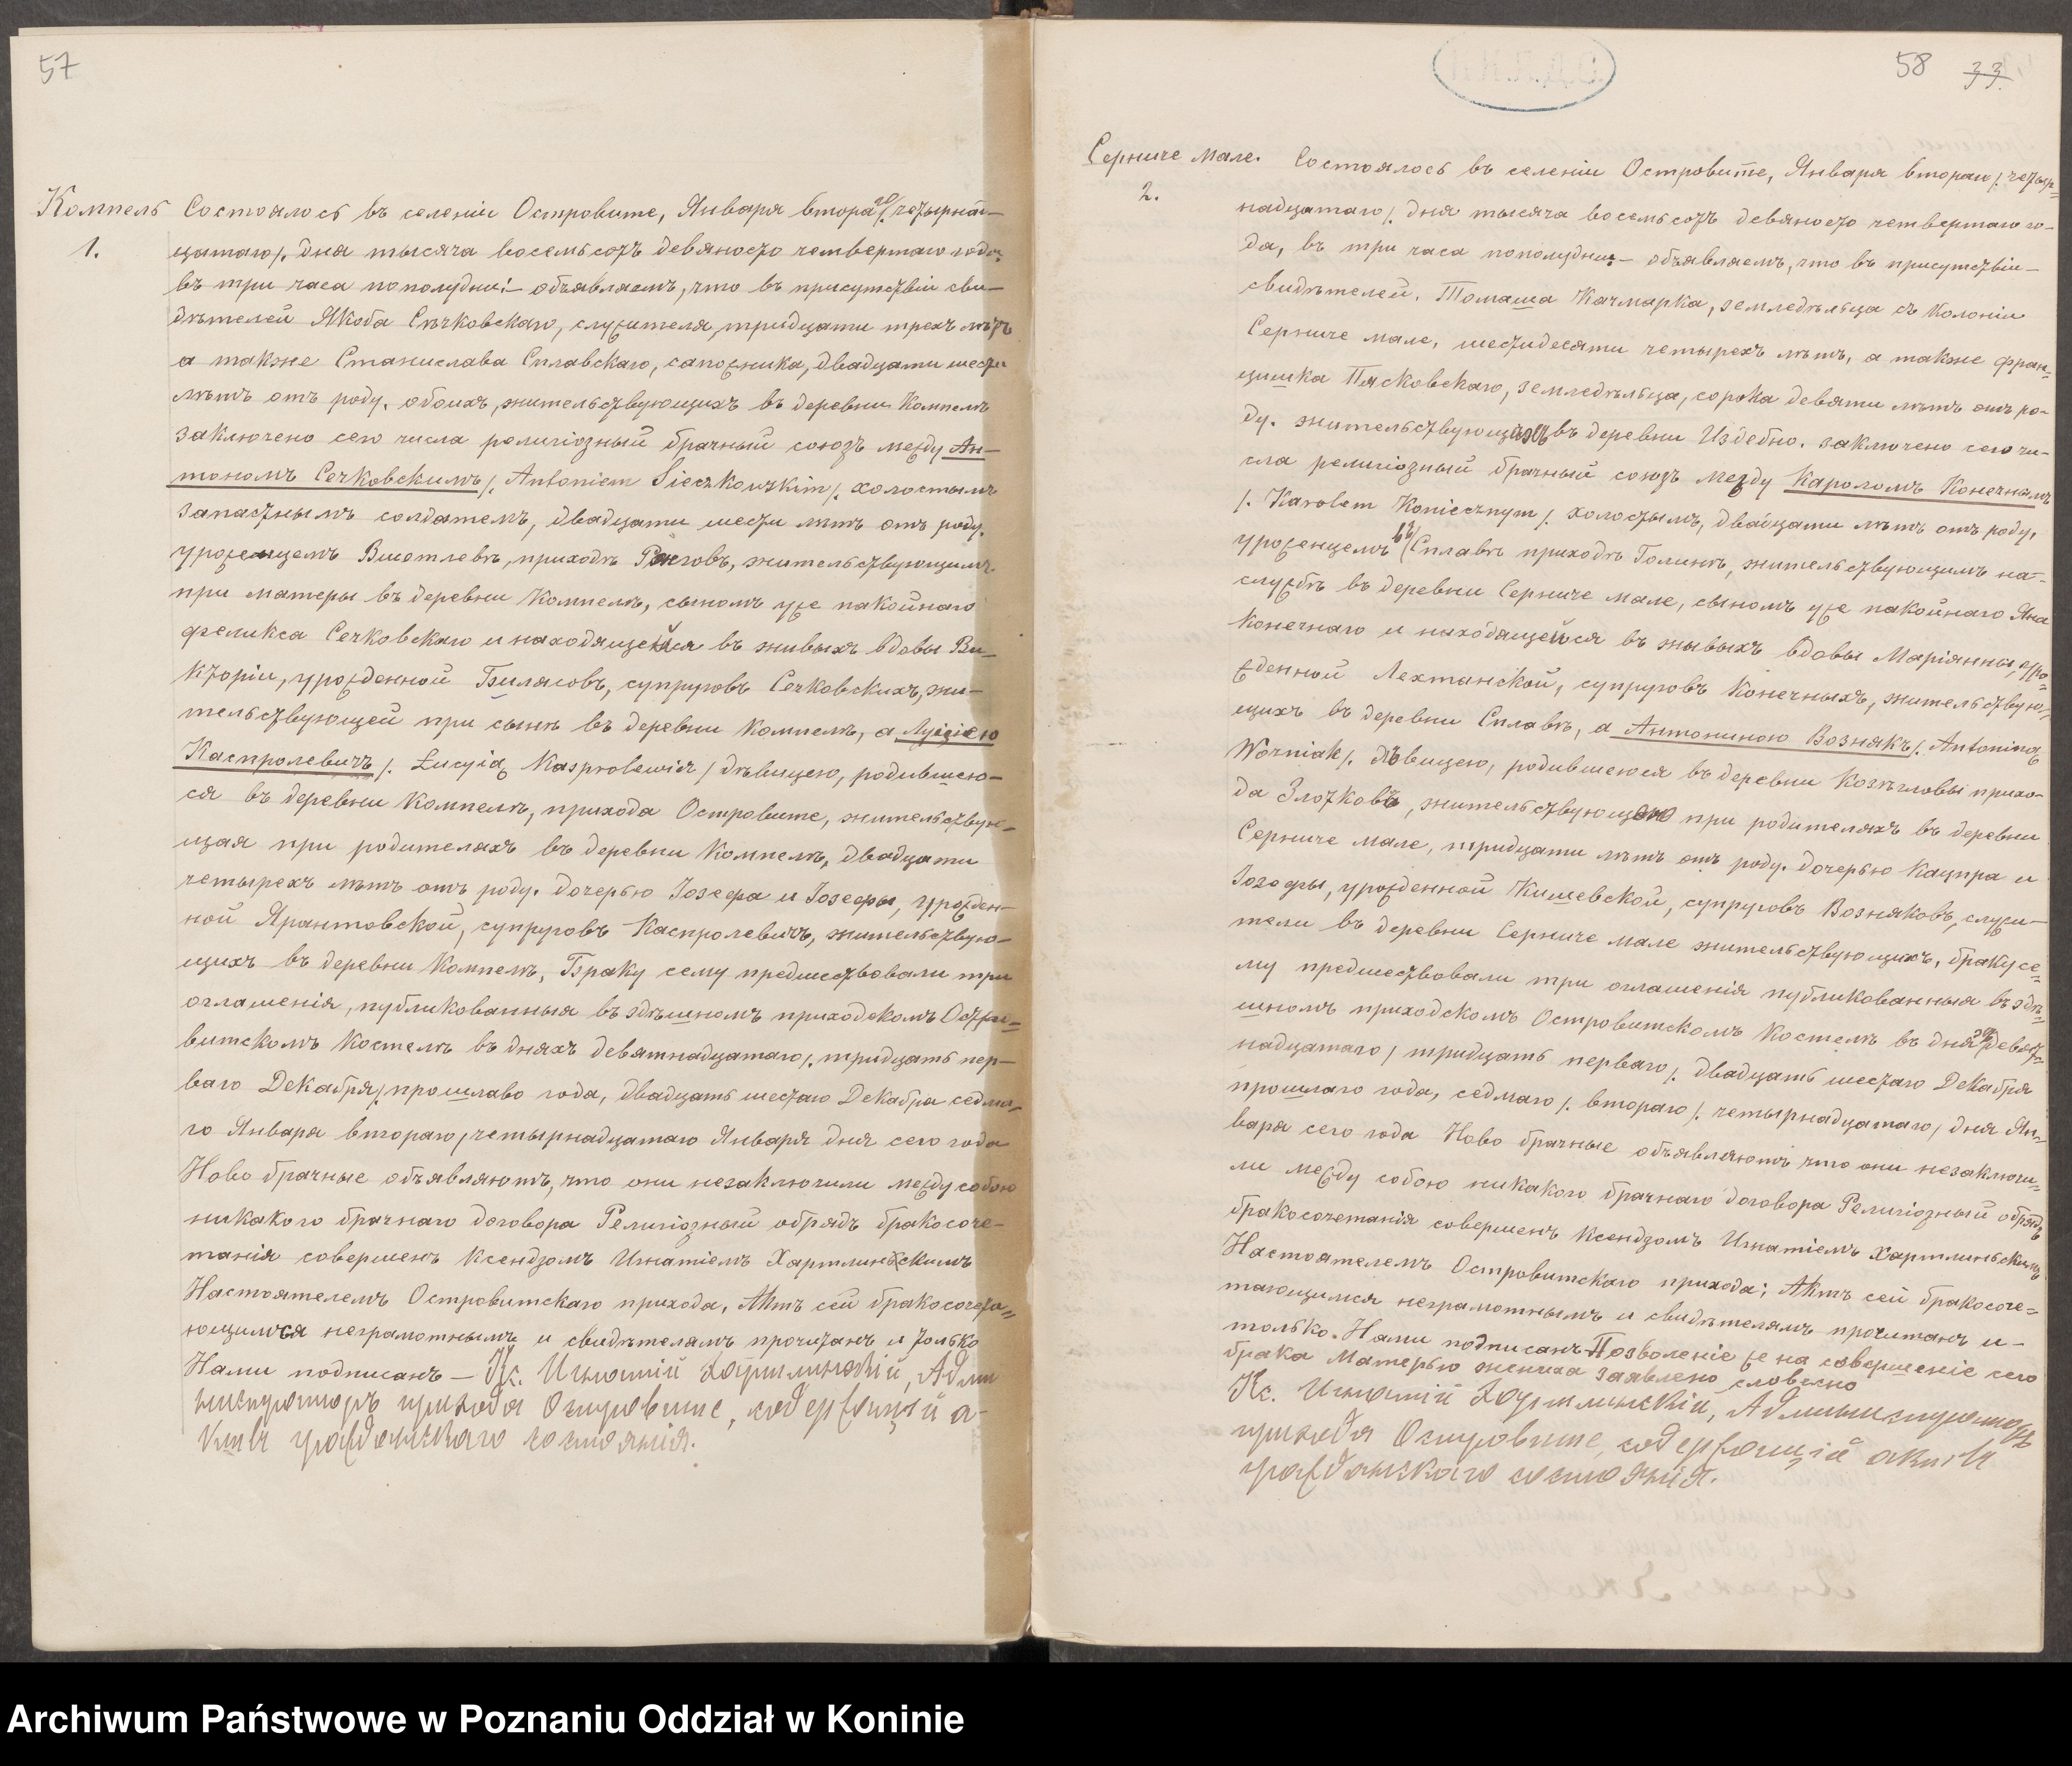 57
Компель
1.
Состоялось въ селеніи Островите, Января втораго /. четырнад-
цатаго /. дня тысяча восемьсотъ девяносто четвертаго года
въ три часа пополудни:– объявляемъ, что въ присутствіи сви-
дѣтелей Якоба Сѣчковскаго, служителя, тридцати трехъ лѣтъ
а также Станислава Сплавскаго, сапожника, двадцати шести
лѣтъ отъ роду, обоихъ, жительствующихъ въ деревни Компель
заключено сего числа религіозный брачный союзъ между Ан-
тономъ Сечковскимъ /. Antoniem Sieczkowskim /. холостымъ
запаснымъ солдатемъ, двадцати шести лѣтъ отъ роду.
уроженцемъ приходѣ жительствующимъ
при матеры въ деревни Компелѣ, сыномъ уже пакойнаго
Феликса Сечковскаго и находящейся въ живыхъ вдовы Ви-
кторіи, урожденной супруговъ Сечковскихъ, жи-
тельствующей при сынѣ въ деревни Компелѣ, а Луціею
Каспролевичъ /. Łucyią Kasprolewicz / дѣвицею, родившею-
ся въ деревни Компелѣ, прихода Островите, жительствую-
щая при родителяхъ въ деревни Компелѣ, двадцати
четырехъ лѣтъ отъ роду. дочерью Іозефа и Іозефы, урожден-
ной Ярантовской, супруговъ Каспролевичъ, жительствую-
щихъ въ деревни Компелѣ, Браку сему предшествовали три
оглашенія, публикованныя въ здѣшномъ приходскомъ Остро-
витскомъ Костелѣ въ дняхъ девятнадцатаго /. тридцать пер-
ваго Декабря /. прошлаво года, двадцать шестаго Декабра седма-
го Января втораго, четырнадцатаго Января дня сего года
Ново брачные объявляютъ, что они незаключили между собою
никакого брачнаго договора Религіозный обрядъ бракосоче-
танія совершенъ Ксендзомъ Игнатіемъ Хармлиньскимъ
Настоятелемъ Островитскаго прихода, Актъ сей бракосочета-
ющимся неграмотнымъ и свидѣтелямъ прочитанъ и только
Нами подписанъ – Кс. Игнатій Хармлинскій, Адми
нистраторъ прихода Островите, содержащій а-
кты гражданскаго состоянія.
58 33
Серниче Мале.
2.
Состоялось въ селеніи Островите, Января втораго /. четыр-
надцатаго /. дня тысяча восемьсотъ девяносто четвертаго го-
да, въ три часа пополудни:– объявляемъ, что въ присутствіи–
свидѣтелей. Томаша Качмарка, земледѣльца съ Колоніи
Серниче мале, шестидесяти четырехъ лѣтъ, а также Фран-
цишка Пясковскаго, земледѣльца, сорока девяти лѣтъ отъ ро-
ду. жительствующихъ въ деревни Издебно. заключено сего чи-
сла религіозный брачный союзъ между Кароломъ Конечнымъ
/. Karolem Koniecznym /. холостымъ, двадцати лѣтъ отъ роду,
уроженцемъ въ Сплавѣ приходѣ Голинѣ, жительствующимъ на-
службѣ въ деревни Серниче мале, сыномъ уже пакойнаго Яна
Конечнаго и находящейся въ жывыхъ вдовы Маріянны, уро-
жденной Лехманской, супруговъ Конечныхъ, жительствую-
щихъ въ деревни Сплавѣ, а Антониною Вознякъ /. Antoniną
Woźniak /. дѣвицею, родившеюся въ деревни Козѣгловы прихо-
да Злотковъ, жительствующею при родителяхъ въ деревни
Серниче мале, тридцати лѣтъ отъ роду. дочерью Кацпра и
Іозефы, урожденной Кишевской, супруговъ Возняковъ, служи-
тели въ деревни Серниче мале жительствующихъ, браку се-
му предшествовали три оглашенія публикованныя въ здѣ-
шномъ приходскомъ Островитскомъ Костелѣ въ дняхъ девят-
надцатаго / тридцать перваго /. двадцать шестаго Декабря
прошлаго года, седмаго /. втораго /. четырнадцатаго / дня Ян-
варя сего года Ново брачные объявляютъ что они незаключи-
ли между собою никакого брачнаго договора Религіозный обрядъ
бракосочетанія совершенъ Ксендзомъ Игнатіемъ Хармлиньскимъ
Настоятелемъ Островитскаго прихода; Актъ сей бракосоче-
тающимся неграмотнымъ и свидѣтелямъ прочитанъ и–
только. Нами подписанъ Позволеніе же на совершеніе сего
брака Матерью жениха заявлено словесно
Кс. Игнатій Хармлинскій, Администраторъ
прихода Островите, содержащій акты
гражданскаго состоянія.
Archiwum Państwowe w Poznaniu Oddział w Koninie